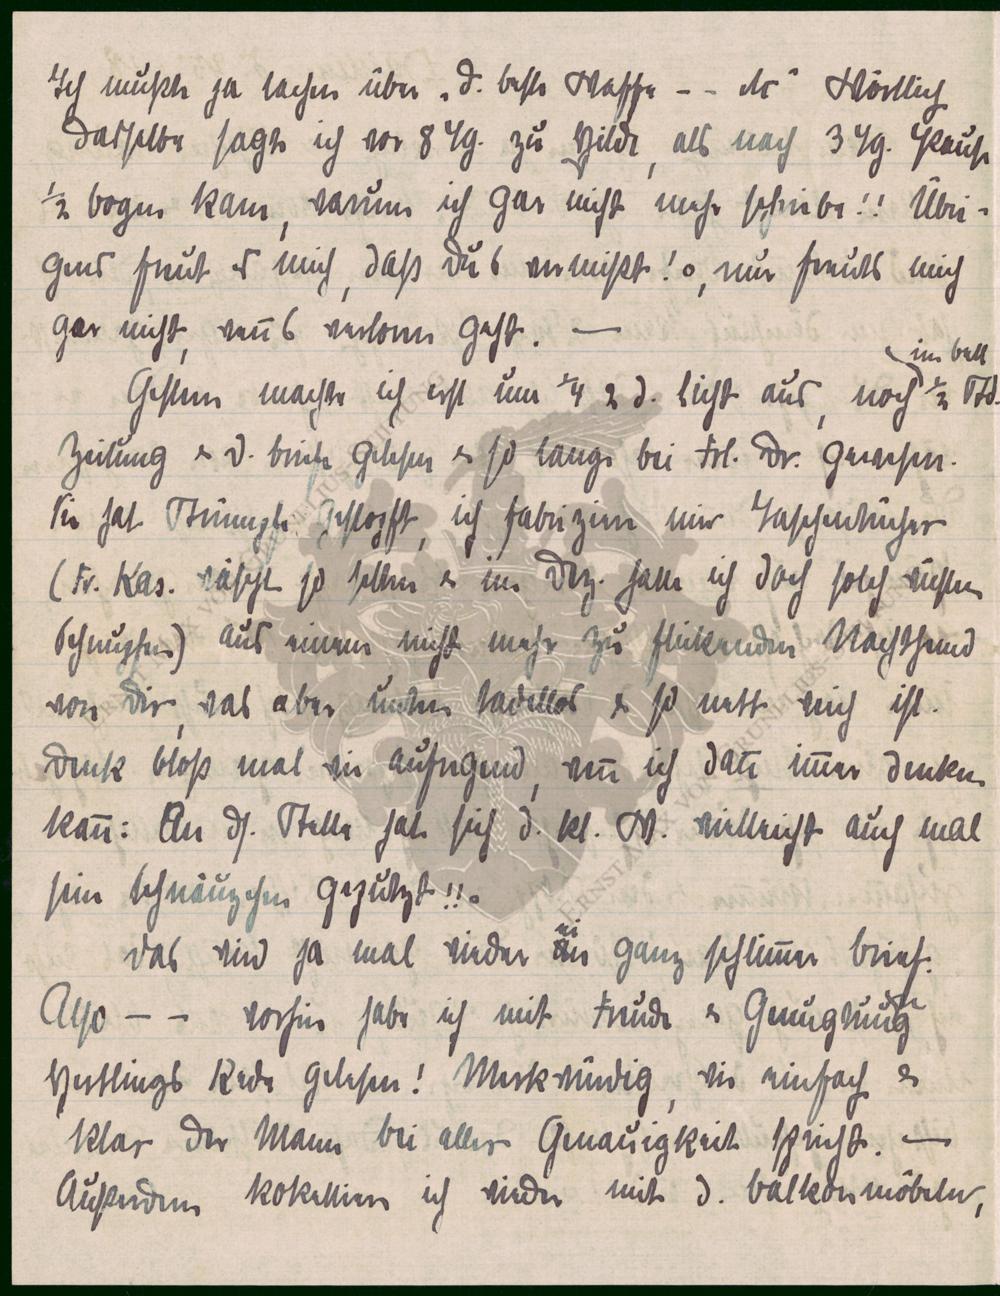 Ich mußte ja lachen über „d. beste Waffe -- etc“ Wörtlich
dasselbe sagte ich vor 8 Tg. zu Hilde, als nach 3 Tg. Pause
½ bogen kam, warum ich gar nicht mehr schreibe!! Übri-
gens freut es mich, daß Du's vermißt!, nur freuts mich
gar nicht, wenn's verloren geht. —
im bett
Gestern machte ich erst um ¼ 2 d. licht aus, noch ½ Std.
Zeitung & d. briefe gelesen & so lange bei Frl. Dr. gewesen.
Sie hat Strümpfe gestopft, ich fabriziere mir Taschentücher
(Fr. Kas. wäscht so selten & im Dez. hatte ich doch solch wüsten
Schnupfen) aus einem nicht mehr zu flickenden Nachthemd
von Dir, was aber unten tadellos & so nett weich ist.
Denk bloß mal wie aufregend, wenn ich dann immer denken
kann: An ds. Stelle hat sich d. kl. W. vielleicht auch mal
sein Schnäuzchen geputzt!!
Das wird ja mal wieder ein ganz schlimmer brief.
Also -- vorhin habe ich mit Freude & Genugtuung
Hertlings Rede gelesen! Merkwürdig, wie einfach &
klar der Mann bei aller Genauigkeit spricht. —
Außerdem kokettiere ich wieder mit d. balkonmöbeln,
ERNST MAX VON GRUNELIUS-STIFTUNG
ERNST MAX VON GRUNELIUS-STIFTUNG